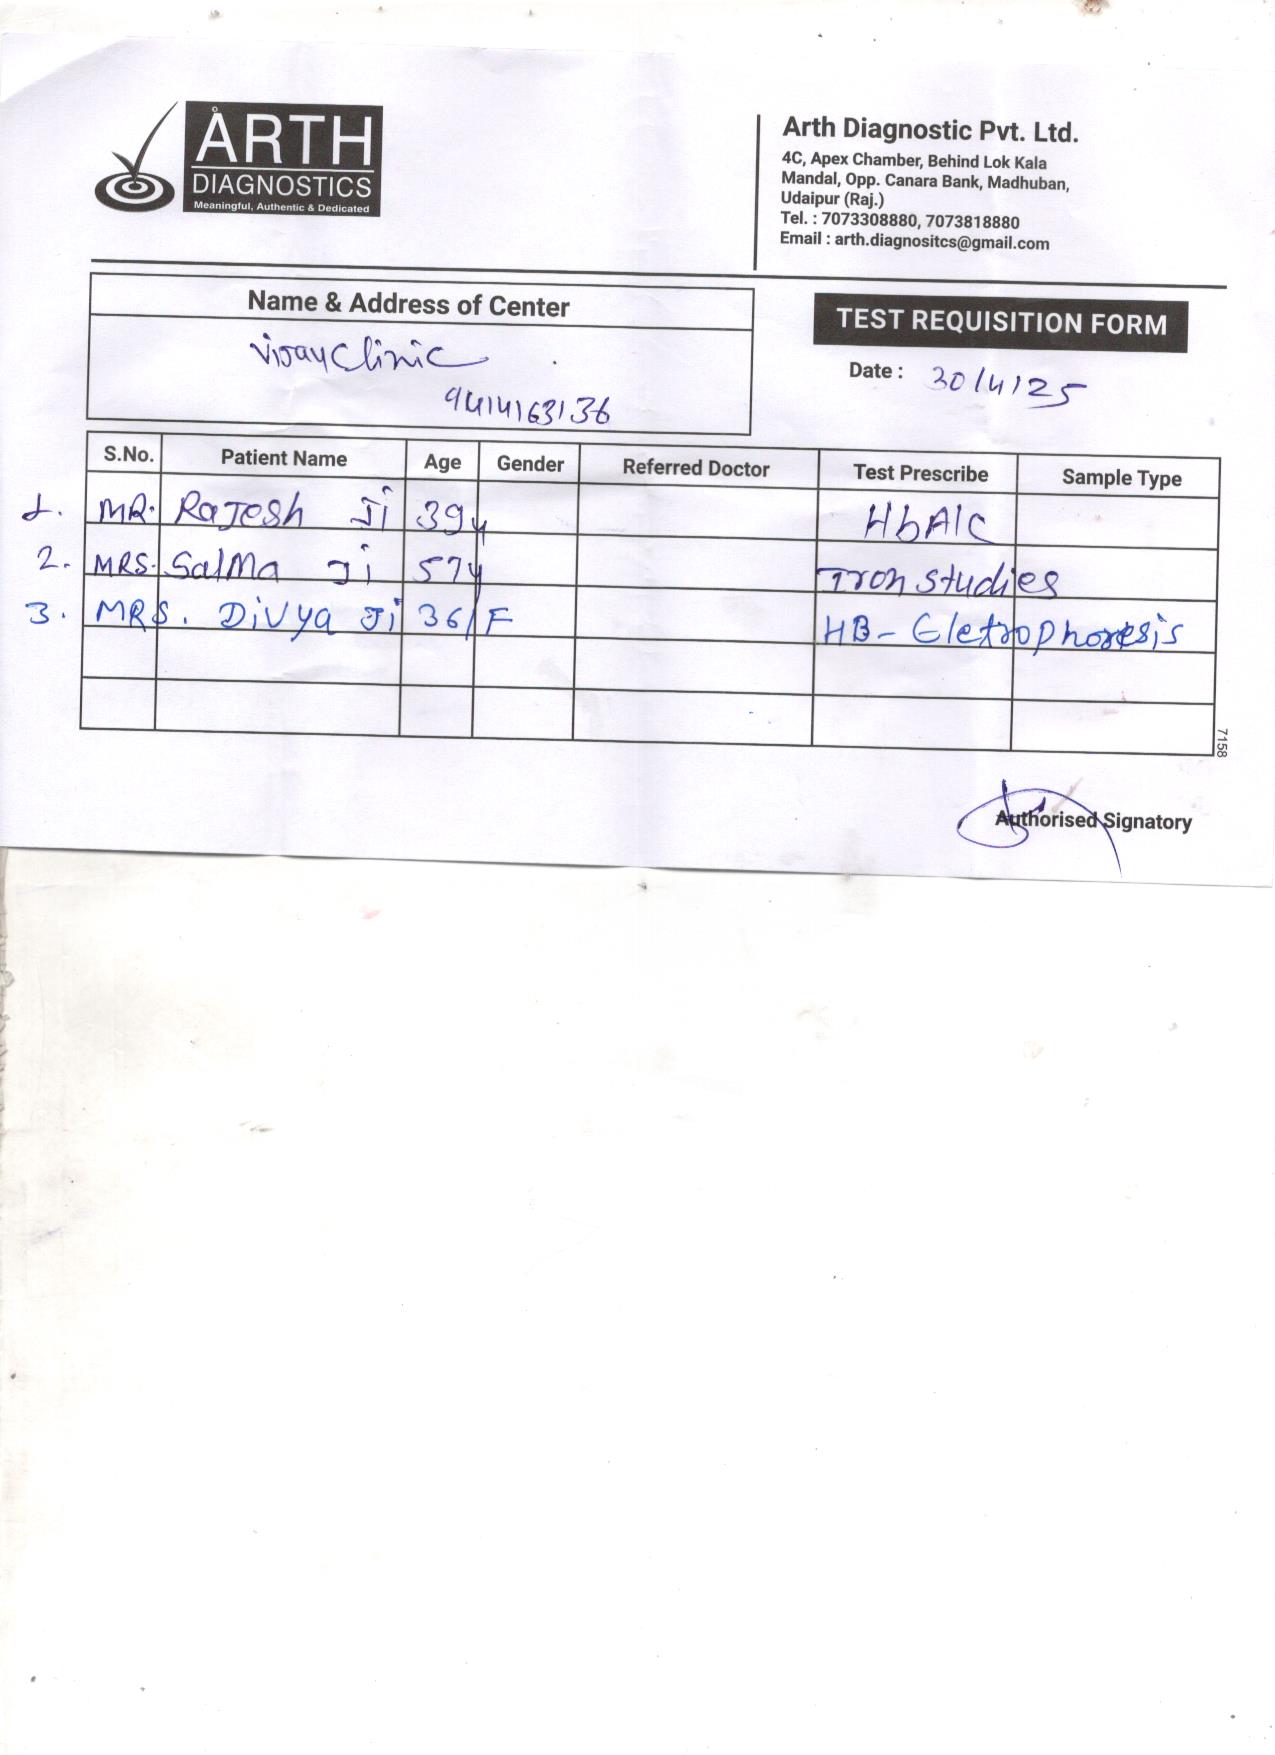 ÅRTH
DIAGNOSTICS
Meaningful, Authentic & Dedicated
Arth Diagnostic Pvt. Ltd.
4C, Apex Chamber, Behind Lok Kala
Mandal, Opp. Canara Bank, Madhuban,
Udaipur (Raj.)
Tel. : 7073308880, 7073818880
Email : arth.diagnositcs@gmail.com
Name & Address of Center
Vijay Clinic
9414163136
TEST REQUISITION FORM
Date : 30/4/25
S.No. Patient Name Age Gender Referred Doctor Test Prescribe Sample Type
1. MR. Rajesh Ji 39y HbA1C
2. MRS. Salma Ji 57y Iron Studies
3. MRS. Divya Ji 36/F HB-Eletrophoresis
7158
Authorised Signatory